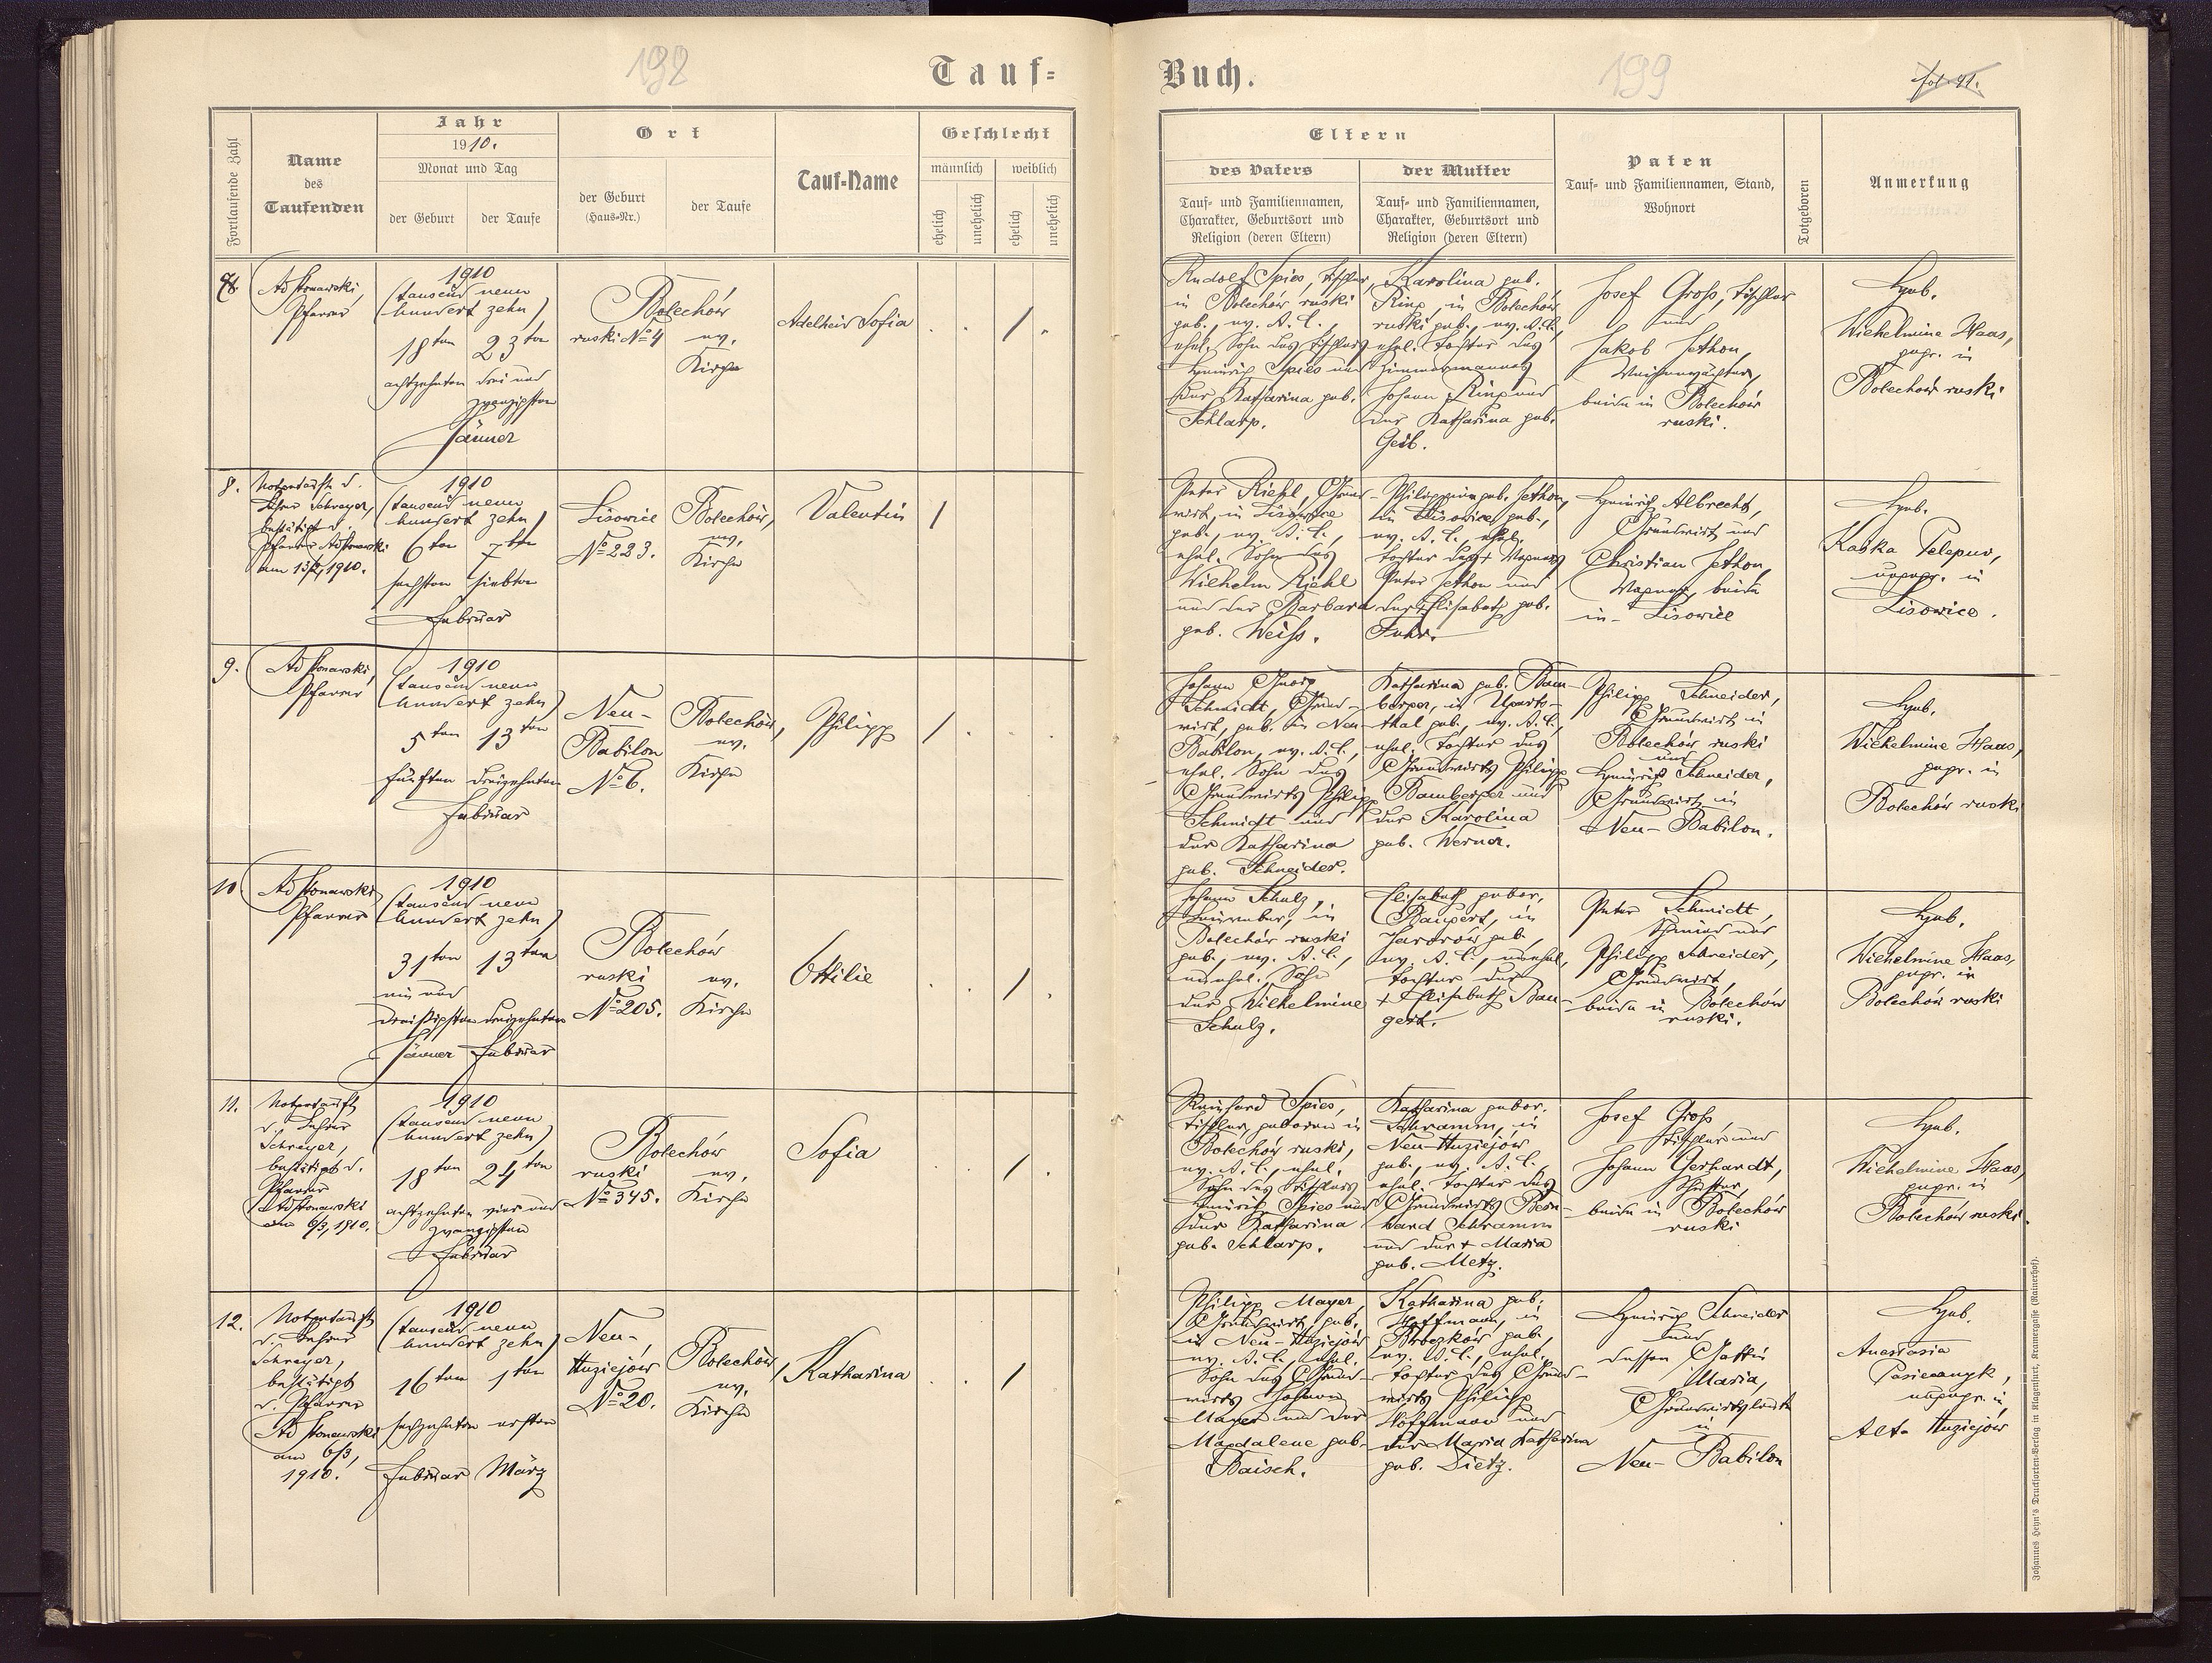 192
Tauf-
Fortlaufende Zahl
Name
des
Taufenden
Jahr
1910.
Monat und Tag
der Geburt
der Taufe
Ort
der Geburt
(Haus-Nr.)
der Taufe
Tauf-Name
Geschlecht
männlich
weiblich
ehelich
unehelich
ehelich
unehelich
Ad Stonawski,
Pfarrer
1910
(tausend neun
hundert zehn)
18ten 23ten
achtzehnten drei und
zwanzigsten
Jänner
Bolechów
ruski No 4 ev.
Kirche
Adelheid Sofia
8. Notgetauft d.
Lehrer Schreyer,
bestätigt d.
Pfarrer Ad Stonawski
am 13/2, 1910.
1910
(tausend neun
hundert zehn)
6ten 7ten
sechsten siebten
Februar
Lisowice
No 223.
Bolechów,
ev.
Kirche
Valentin
9. Ad Stonawski,
Pfarrer
1910
(tausend neun
hundert zehn)
5ten 13ten
fünften dreizehnten
Februar
Neu-
Babilon
No 6.
Bolechów,
ev.
Kirche
Philipp
10 Ad Stonawski
Pfarrer
1910
(tausend neun
hundert zehn)
31ten 13ten
ein und
dreißigsten dreizehnten
Jänner Februar
Bolechów
ruski ev.
No 205. Kirche
Ottilie
11. Notgetauft
d. Lehrer
Schreyer,
bestätigt d.
Pfarrer
Ad Stonawski
am 6/3, 1910.
1910
(tausend neun
hundert zehn)
18ten 24ten
achtzehnten vier und
zwanzigsten
Februar
Bolechów
ruski ev.
No 345. Kirche
Sofia
12. Notgetauft
d. Lehrer
Schreyer,
bestätigt
d. Pfarrer
Ad Stonawski
am 6/3,
1910.
1910
(tausend neun
hundert zehn)
16ten 1ten
sechzehnten ersten
Februar März
Neu-
Huziejów
No 20.
Bolechów,
ev.
Kirche
Katharina
Buch.
199
fol 41.
Eltern
des Vaters
Tauf- und Familiennamen,
Charakter, Geburtsort und
Religion (deren Eltern)
der Mutter
Tauf- und Familiennamen,
Charakter, Geburtsort und
Religion (deren Eltern)
Paten
Tauf- und Familiennamen, Stand,
Wohnort
Totgeboren
Anmerkung
Rudolf Spies, Tischler,
in Bolechów ruski
geb., ev. A. C.,
ehel. Sohn des Tischlers
Heinrich Spies und
der Katharina geb.
Schlarp.
Karolina geb.
Ring, in Bolechów
ruski geb., ev. A. C.,
ehel. Tochter des
Zimmermannes
Johann Ring und
der Katharina geb.
Geib.
Josef Groß, Tischler
und
Jakob Jethon,
beide in Bolechów
ruski.
Heb.
Wilhelmine Haas,
gepr. in
Bolechów ruski
Peter Riehl, Grund-
wirt, in Lisowice
geb., ev. A. C.,
ehel. Sohn des
Wilhelm Riehl
und der Barbara
geb. Weiß.
Philippine geb. Jethon,
in Lisowice geb.,
ev. A. C., ehel.
Tochter des + Wagners
Peter Jethon und
der + Elisabeth geb.
Fuhr.
Heinrich Albrecht,
Grundwirt und
Christian Jethon,
Wagner, beide
in Lisowice
Heb.
Kaska Telepus,
ungepr. in
Lisowice.
Johann Georg
Schmidt, Grund-
wirt, geb. in Neu-
Babilon, ev. A. C.,
ehel. Sohn des
Grundwirts Philipp
Schmidt und
der Katharina
geb. Schneider.
Katharina geb. Bam-
berger, in Ugarts-
thal geb., ev. A. C.,
ehel. Tochter des
Grundwirts Philipp
Bamberger und
der Karolina
geb. Werner.
Philipp Schneider,
Grundwirt in
Bolechów ruski
und
Heinrich Schneider,
Grundwirt in
Neu-Babilon.
Heb.
Wilhelmine Haas,
gepr. in
Bolechów ruski
Johann Schulz,
in
Bolechów ruski
geb., ev. A. C.,
unehel. Sohn
der Wilhelmine
Schulz.
Elisabeth gebor.
Baugert, in
geb.,
ev. A. C., unehel.
Tochter der
+ Elisabeth Bau-
gert.
Peter Schmidt,
Schmied und
Philipp Schneider,
Grundwirt,
beide in Bolechów
ruski.
Heb.
Wilhelmine Haas,
gepr. in
Bolechów ruski
Reinhard Spies,
Tischler, geboren in
Bolechów ruski,
ev. A. C., ehel.
Sohn des Tischlers
Heinrich Spies und
der Katharina
geb. Schlarp.
Katharina gebor.
Schramm, in
Neu-Huziejów
geb., ev. A. C.
ehel. Tochter des
Grundwirts Bern-
hard Schramm
und der + Maria
geb. Metz.
Josef Groß,
Tischler und
Johann Gerhardt,
Schuster,
beide in Bolechów
ruski
Heb.
Wilhelmine Haas,
gepr. in
Bolechów ruski.
Philipp Mayer,
Grundwirt, geb.
in Neu-Huziejów
ev. A. C., ehel.
Sohn des Grund-
wirts Johann
Mayer und der
Magdalene geb.
Baisch.
Katharina geb.
Hoffmann, in
Broczków geb.,
ev. A. C., ehel.
Tochter des Grund-
wirts Philipp
Hoffmann und
der Maria Katharina
geb. Dietz.
Heinrich Schneider
und
dessen Gattin
Maria,
Grundwirtsleute
in
Neu-Babilon
Heb.
Anastasia
ungepr. in
Alt-Huziejów
Johannes Heyn's Drucksorten-Verlag in Klagenfurt, Kramergasse (Rainerhof).